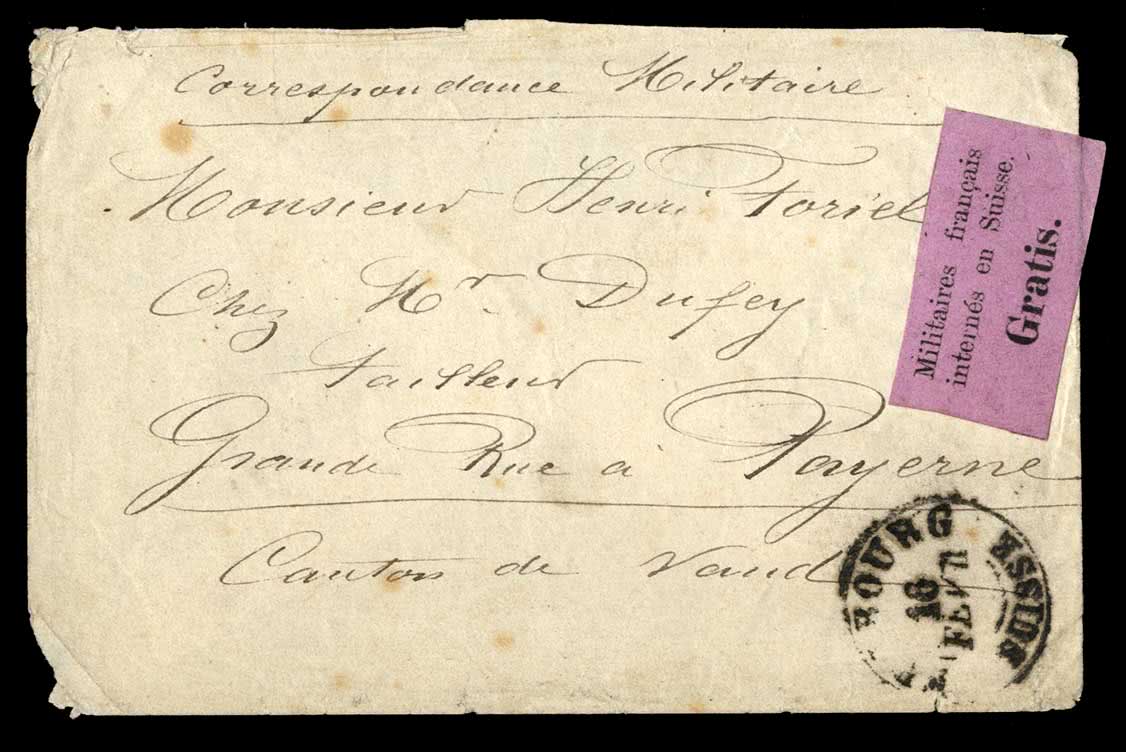 Correspondance Militaire
Monsieur Henri Foriel
Chez Mr Dufey
tailleur
Grande Rue à Payerne
Canton de Vaud
Militaires français
internés en Suisse.
Gratis.
BOURG SUISSE
18
FEVR